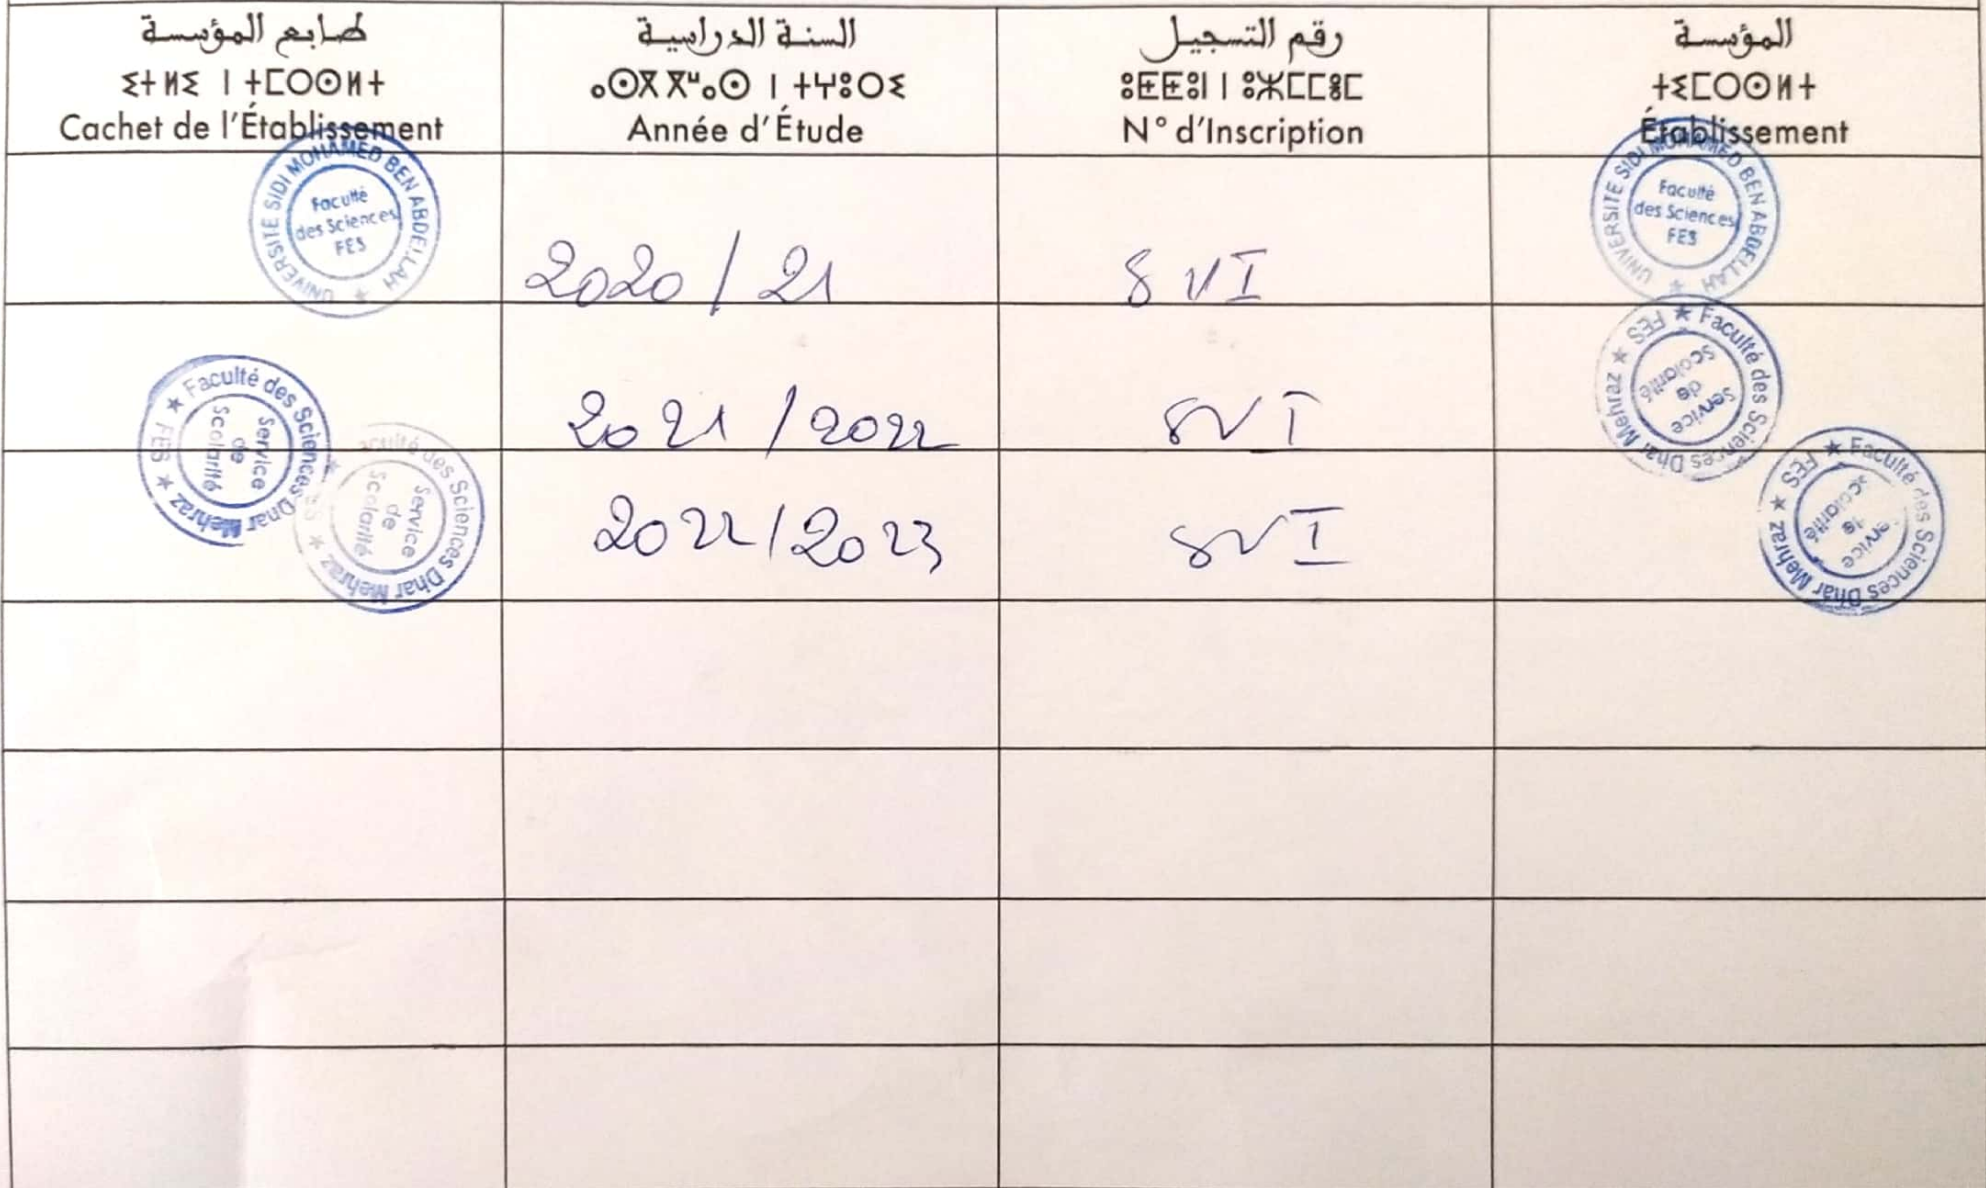 طابع المؤسسة
ⵉⵜⵍⵉ ⵏ ⵜⵎⵔⵙⵍⵜ
Cachet de l'Établissement
السنة الدراسية
ⴰⵙⴳⴳⵯⴰⵙ ⵏ ⵜⵖⵓⵔⵉ
Année d'Étude
رقم التسجيل
ⵓⵟⵟⵓⵏ ⵏ ⵓⵣⵎⵎⴻⵎ
N° d'Inscription
المؤسسة
ⵜⵉⵎⵔⵙⵍⵜ
Établissement
UNIVERSITE SIDI MOHAMED BEN ABDELLAH
Faculté
des Sciences
FES
2020/21
SVI
UNIVERSITE SIDI MOHAMED BEN ABDELLAH
Faculté
des Sciences
FES
★ Faculté des Sciences Dhar Mehraz ★ FES
Service
de
Scolarité
2021/2022
SVI
★ Faculté des Sciences Dhar Mehraz ★ FES
Service
de
Scolarité
Faculté des Sciences Dhar Mehraz ★
Service
de
Scolarité
2022/2023
SVI
★ Faculté des Sciences Dhar Mehraz ★ FES
Service
de
Scolarité